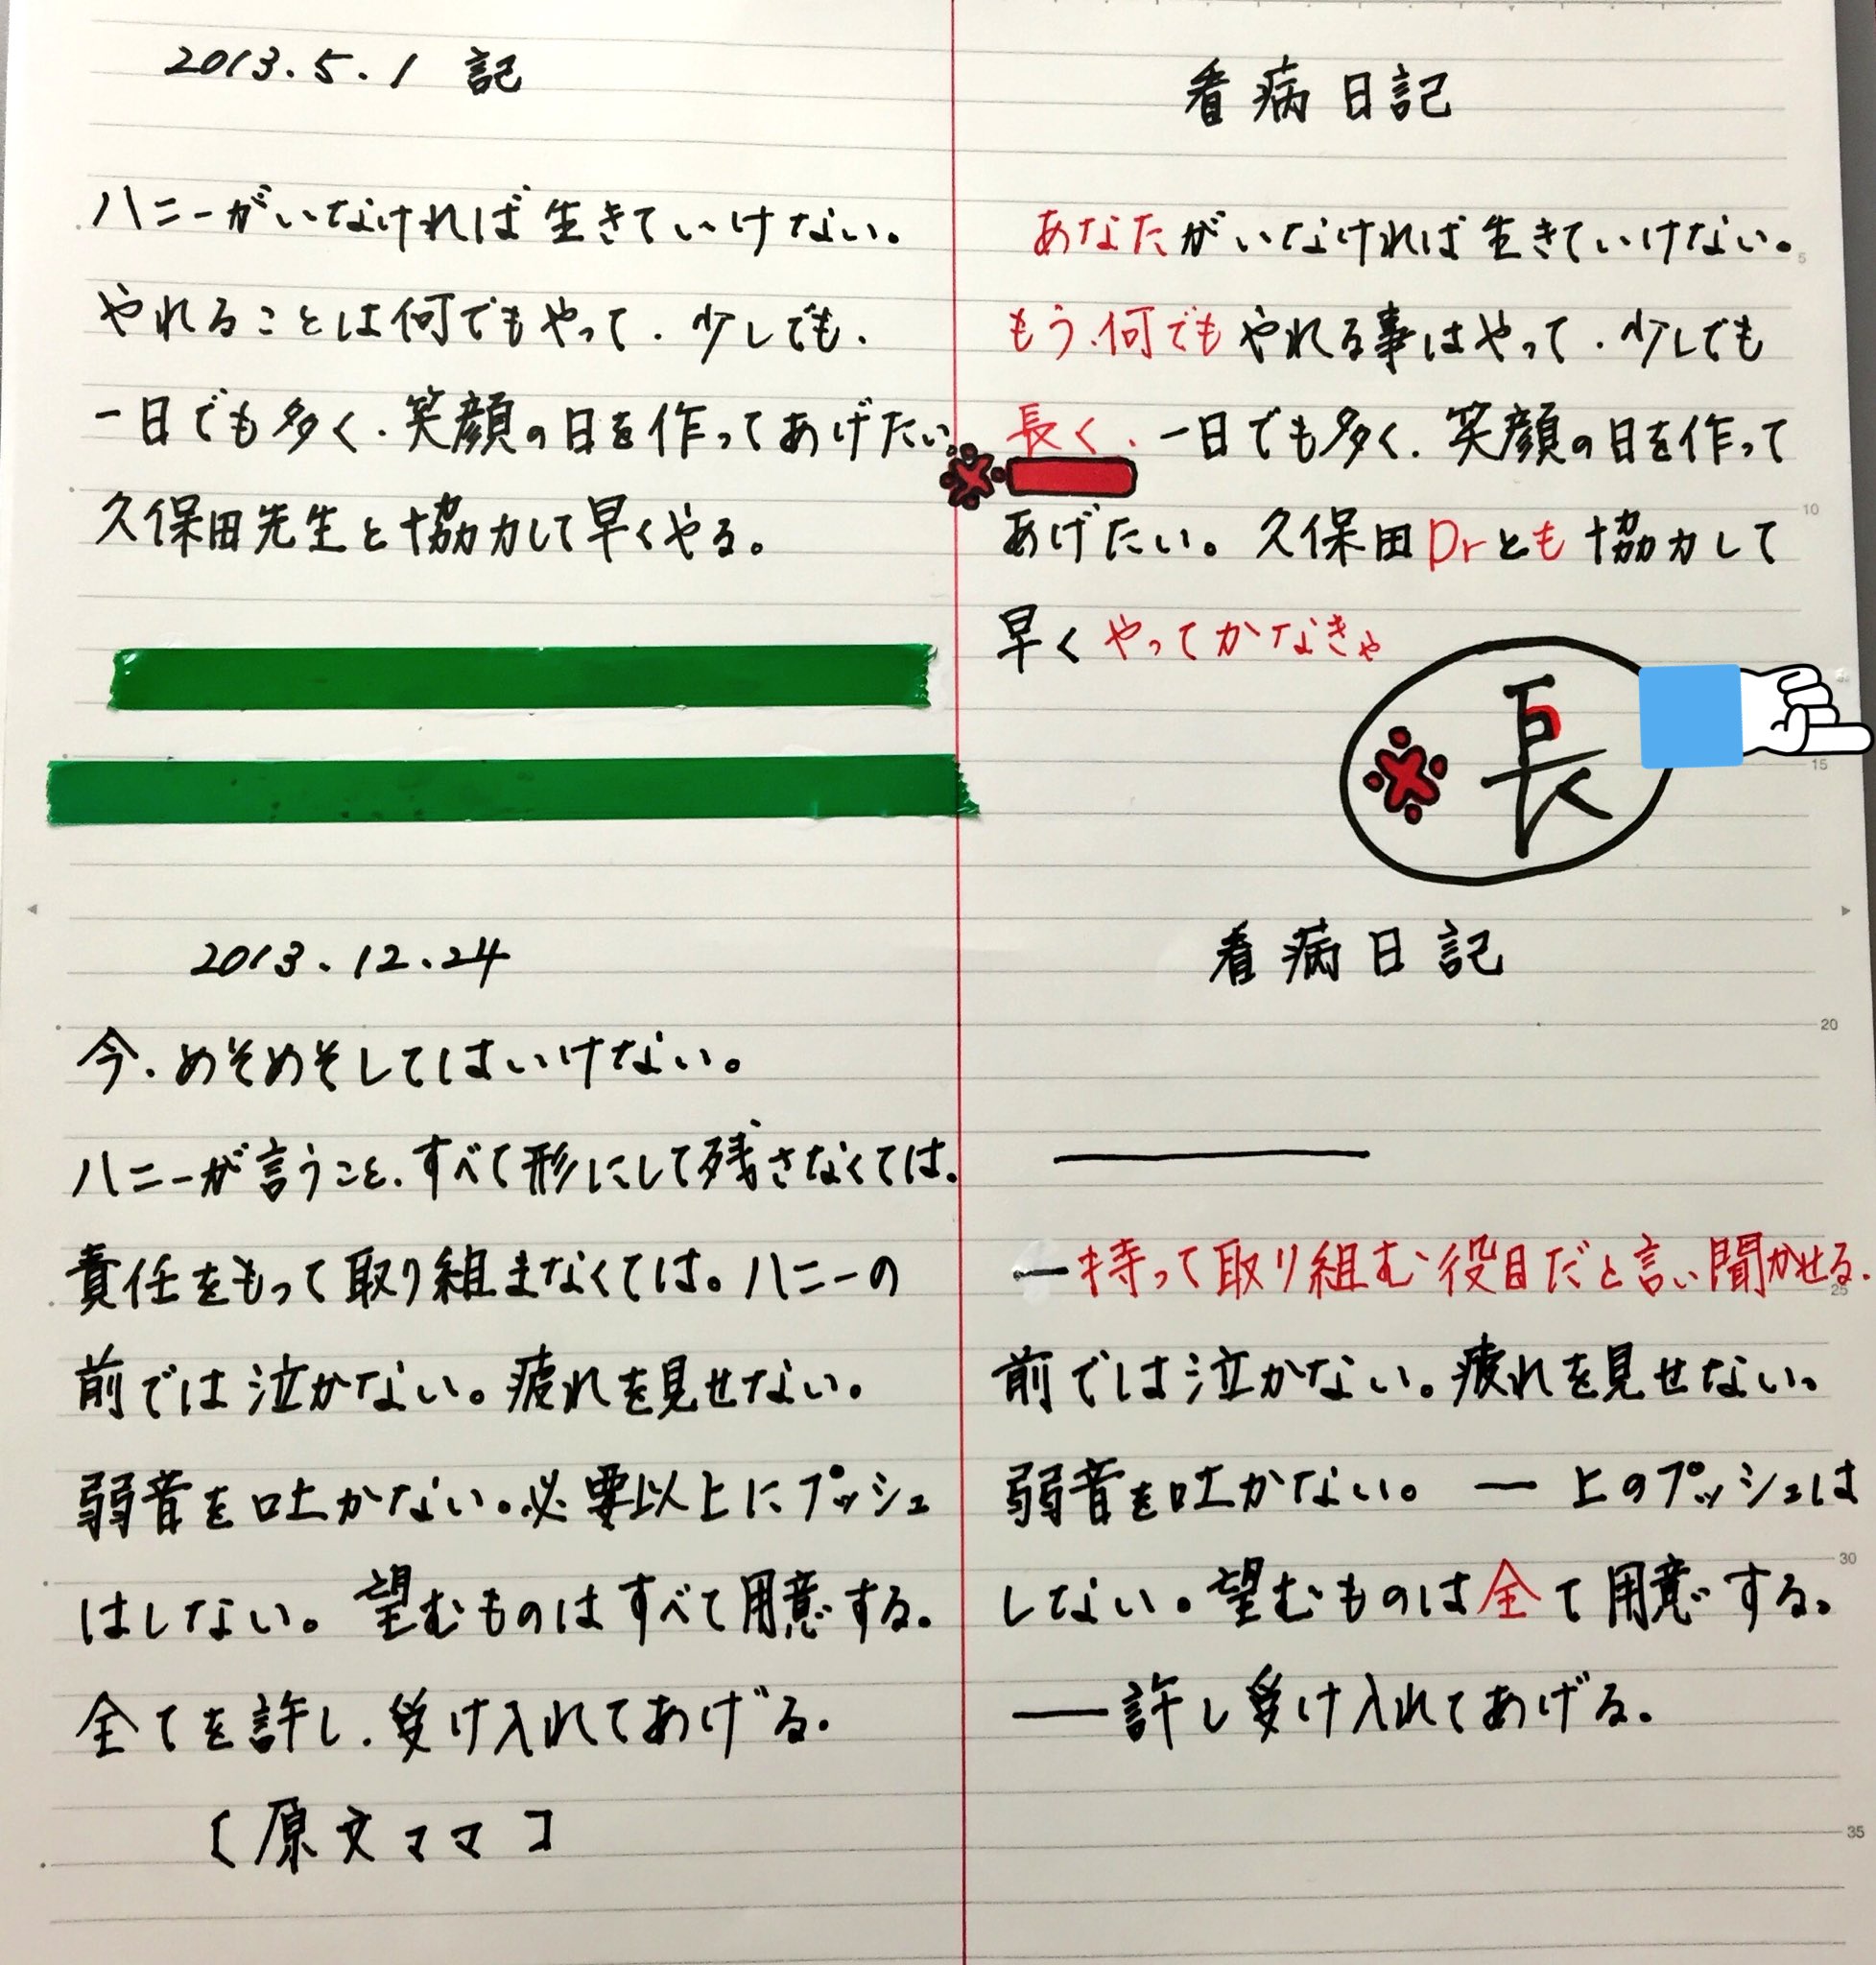 2013.5.1 記
ハニーがいなければ生きていけない。
やれることは何でもやって．少しでも．
一日でも多く．笑顔の日を作ってあげたい。
久保田先生と協力して早くやる。
看病日記
あなたがいなければ生きていけない。
もう．何でもやれる事はやって．少しでも
長く．一日でも多く．笑顔の日を作って
あげたい。久保田Drとも協力して
早くやってかなきゃ
※長
5
10
15
2013.12.24
今．めそめそしてはいけない。
ハニーが言うこと．すべて形にして残さなくては．
責任をもって取り組まなくては。ハニーの
前では泣かない。疲れを見せない．
弱音を吐かない。必要以上にプッシュ
はしない。望むものはすべて用意する。
全てを許し．受け入れてあげる．
〔原文ママ〕
看病日記
―持って取り組む役目だと言い聞かせる．
前では泣かない。疲れを見せない．
弱音を吐かない。―上のプッシュは
しない。望むものは全て用意する。
―許し受け入れてあげる．
20
25
30
35